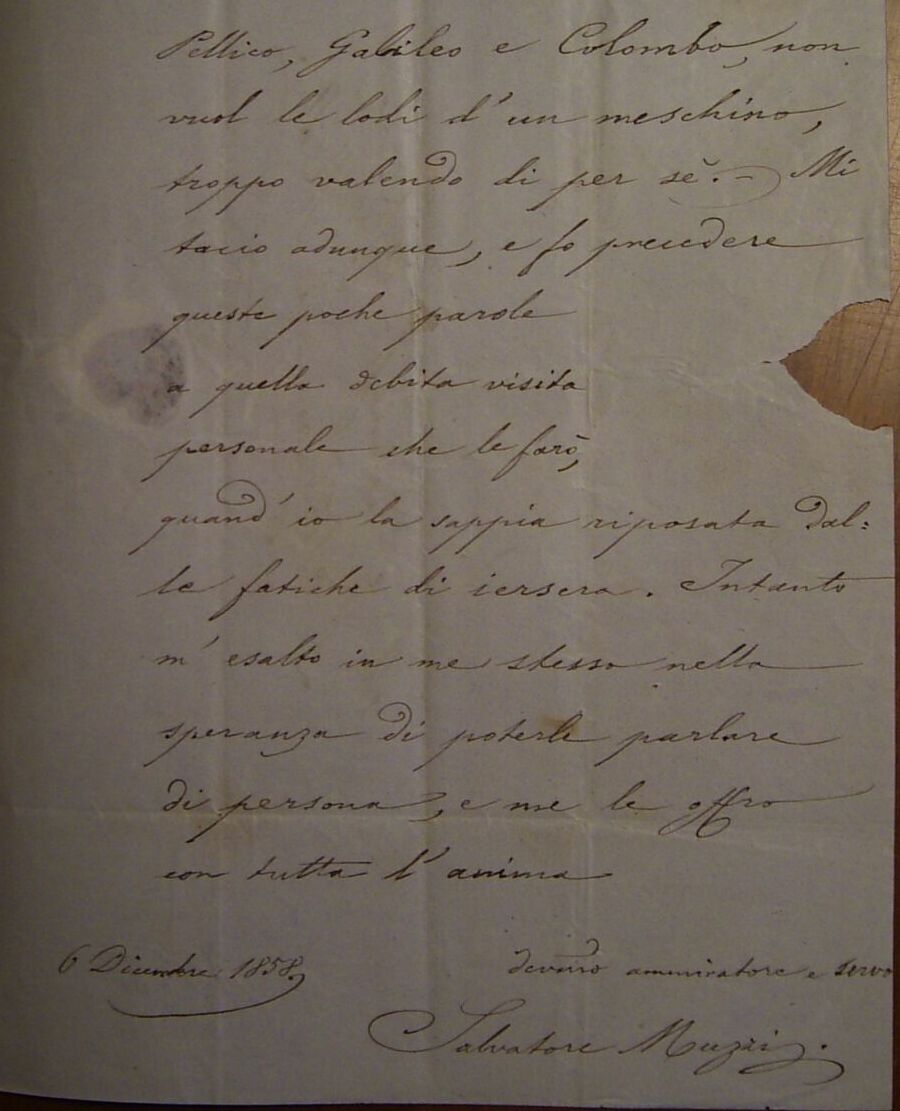 Pellico, Galileo e Colombo, non
vuol le lodi d'un meschino,
troppo valendo di per sè. - Mi
tacio adunque, e fo precedere
queste poche parole
a quella debita visita
personale che le farò,
quand'io la sappia riposata dal:
le fatiche di iersera. Intanto
m'esalto in me stesso nella
speranza di poterle parlare
di persona, e me le offro
con tutta l'anima
6 Dicembre 1858.
devmo ammiratore e servo
Salvatore Muzzi.